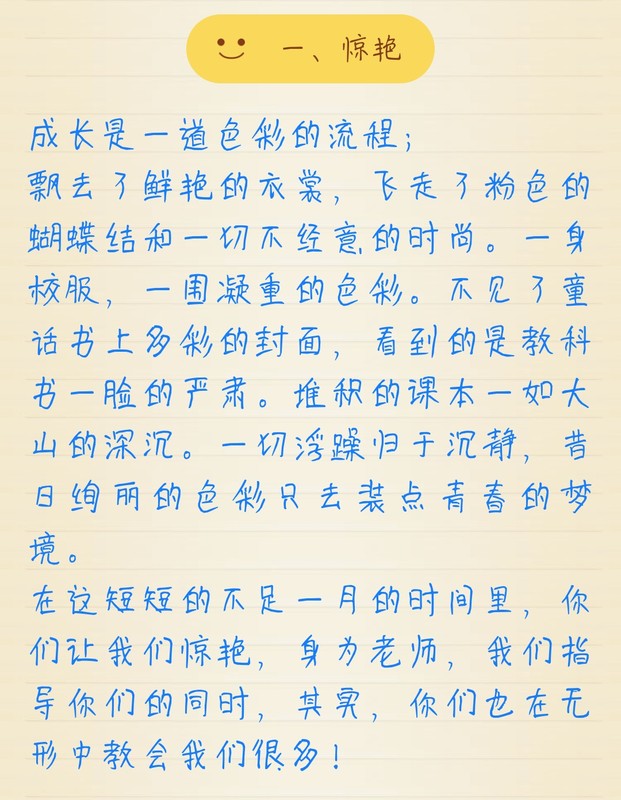 一、惊艳
成长是一道色彩的流程；
飘去了鲜艳的衣裳，飞走了粉色的
蝴蝶结和一切不经意的时尚。一身
校服，一围凝重的色彩。不见了童
话书上多彩的封面，看到的是教科
书一脸的严肃。堆积的课本一如大
山的深沉。一切浮躁归于沉静，昔
日绚丽的色彩只去装点青春的梦
境。
在这短短的不足一月的时间里，你
们让我们惊艳，身为老师，我们指
导你们的同时，其实，你们也在无
形中教会我们很多！